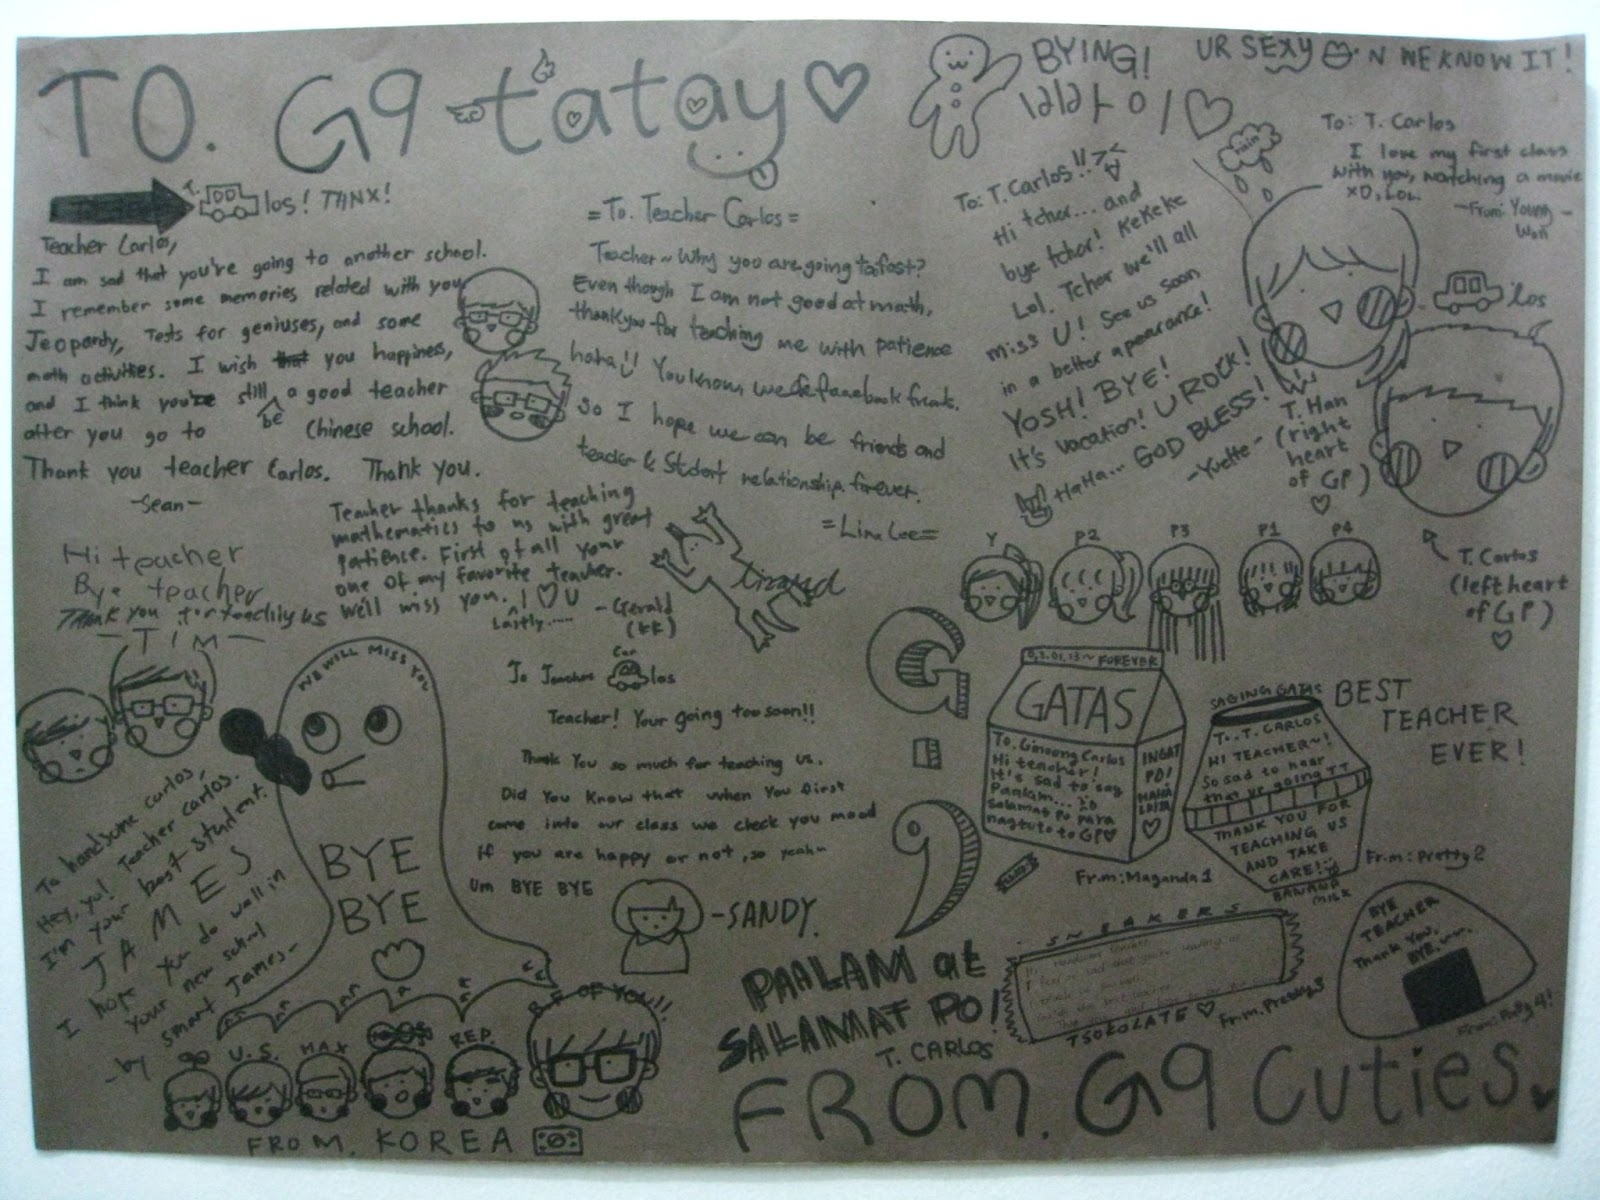 TO. G9 tatay ♡
BYING!
UR SEXY N WE KNOW IT!
T.
los! THNX!
Teacher Carlos,
I am sad that you're going to another school.
I remember some memories related with you
Jeopardy, Tests for geniuses, and some
math activities. I wish you happiness,
and I think you're still be a good teacher
after you go to Chinese school.
Thank you teacher Carlos. Thank you.
-Sean-
= To. Teacher Carlos =
Teacher~ Why you are going to fast?
Even though I am not good at math,
thank you for teaching me with patience
haha!! You know, we facebook freaks.
So I hope we can be friends and
teacher & Student relationship forever.
= Lina Lee =
To: T. Carlos!!
Hi tcher... and
bye tcher! KeKeKe
Lol. Tcher we'll all
miss U! See us soon
in a better apearance!
YOSH! BYE!
It's vacation! U ROCK!
HaHa... GOD BLESS!
-Yvette-
rain
To: T. Carlos
I love my first class
with you, watching a movie
XD, LOL.
-From: Young-
Won
los
T. Han
(right
heart
of GP)
♡
T. Carlos
(left heart
of GP)
♡
Hi teacher
Bye teacher
Thank you for teaching us
-TIM-
Teacher thanks for teaching
mathematics to us with great
patience. First of all your
one of my favorite teacher.
We'll miss you. I ♡ U
Lastly.....
-Gerald
(kk)
Y P2 P3 P1 P4
WE WILL MISS YOU
BYE
BYE
To handsome Carlos,
Hey, yo! Teacher Carlos.
I'm your best student.
JAMES
I hope you do well in
your new school
-by smart James-
Car
To Teacher los
Teacher! Your going too soon!!
Thank You so much for teaching us.
Did You Know that when You first
came into our class we check you mood
if you are happy or not, so yeah~
Um BYE BYE
-SANDY.
G.9
03.01.13~FOREVER
GATAS
To. Ginoong Carlos
Hi teacher!
It's sad to say
Paalam...
Salamat po para
nagtuto to GP♡
INGAT
PO!
♡
Fr.m: Maganda 1
SAGING GATAS
To. T. CARLOS
HI TEACHER~!
So sad to hear
that ur going TT
THANK YOU FOR
TEACHING US
AND TAKE
CARE!
BANANA
MILK
Fr.m: Pretty 2
BEST
TEACHER
EVER!
PAALAM at
SALAMAT PO!
T. CARLOS
SNEAKERS
TSOKOLATE ♡
Fr.m. Pretty 3
BYE
TEACHER
Thank You,
BYE
From: Pretty 4!
U.S. MAX REP.
B.F OF YOU!!
FROM. KOREA
FROM. G9 Cuties.